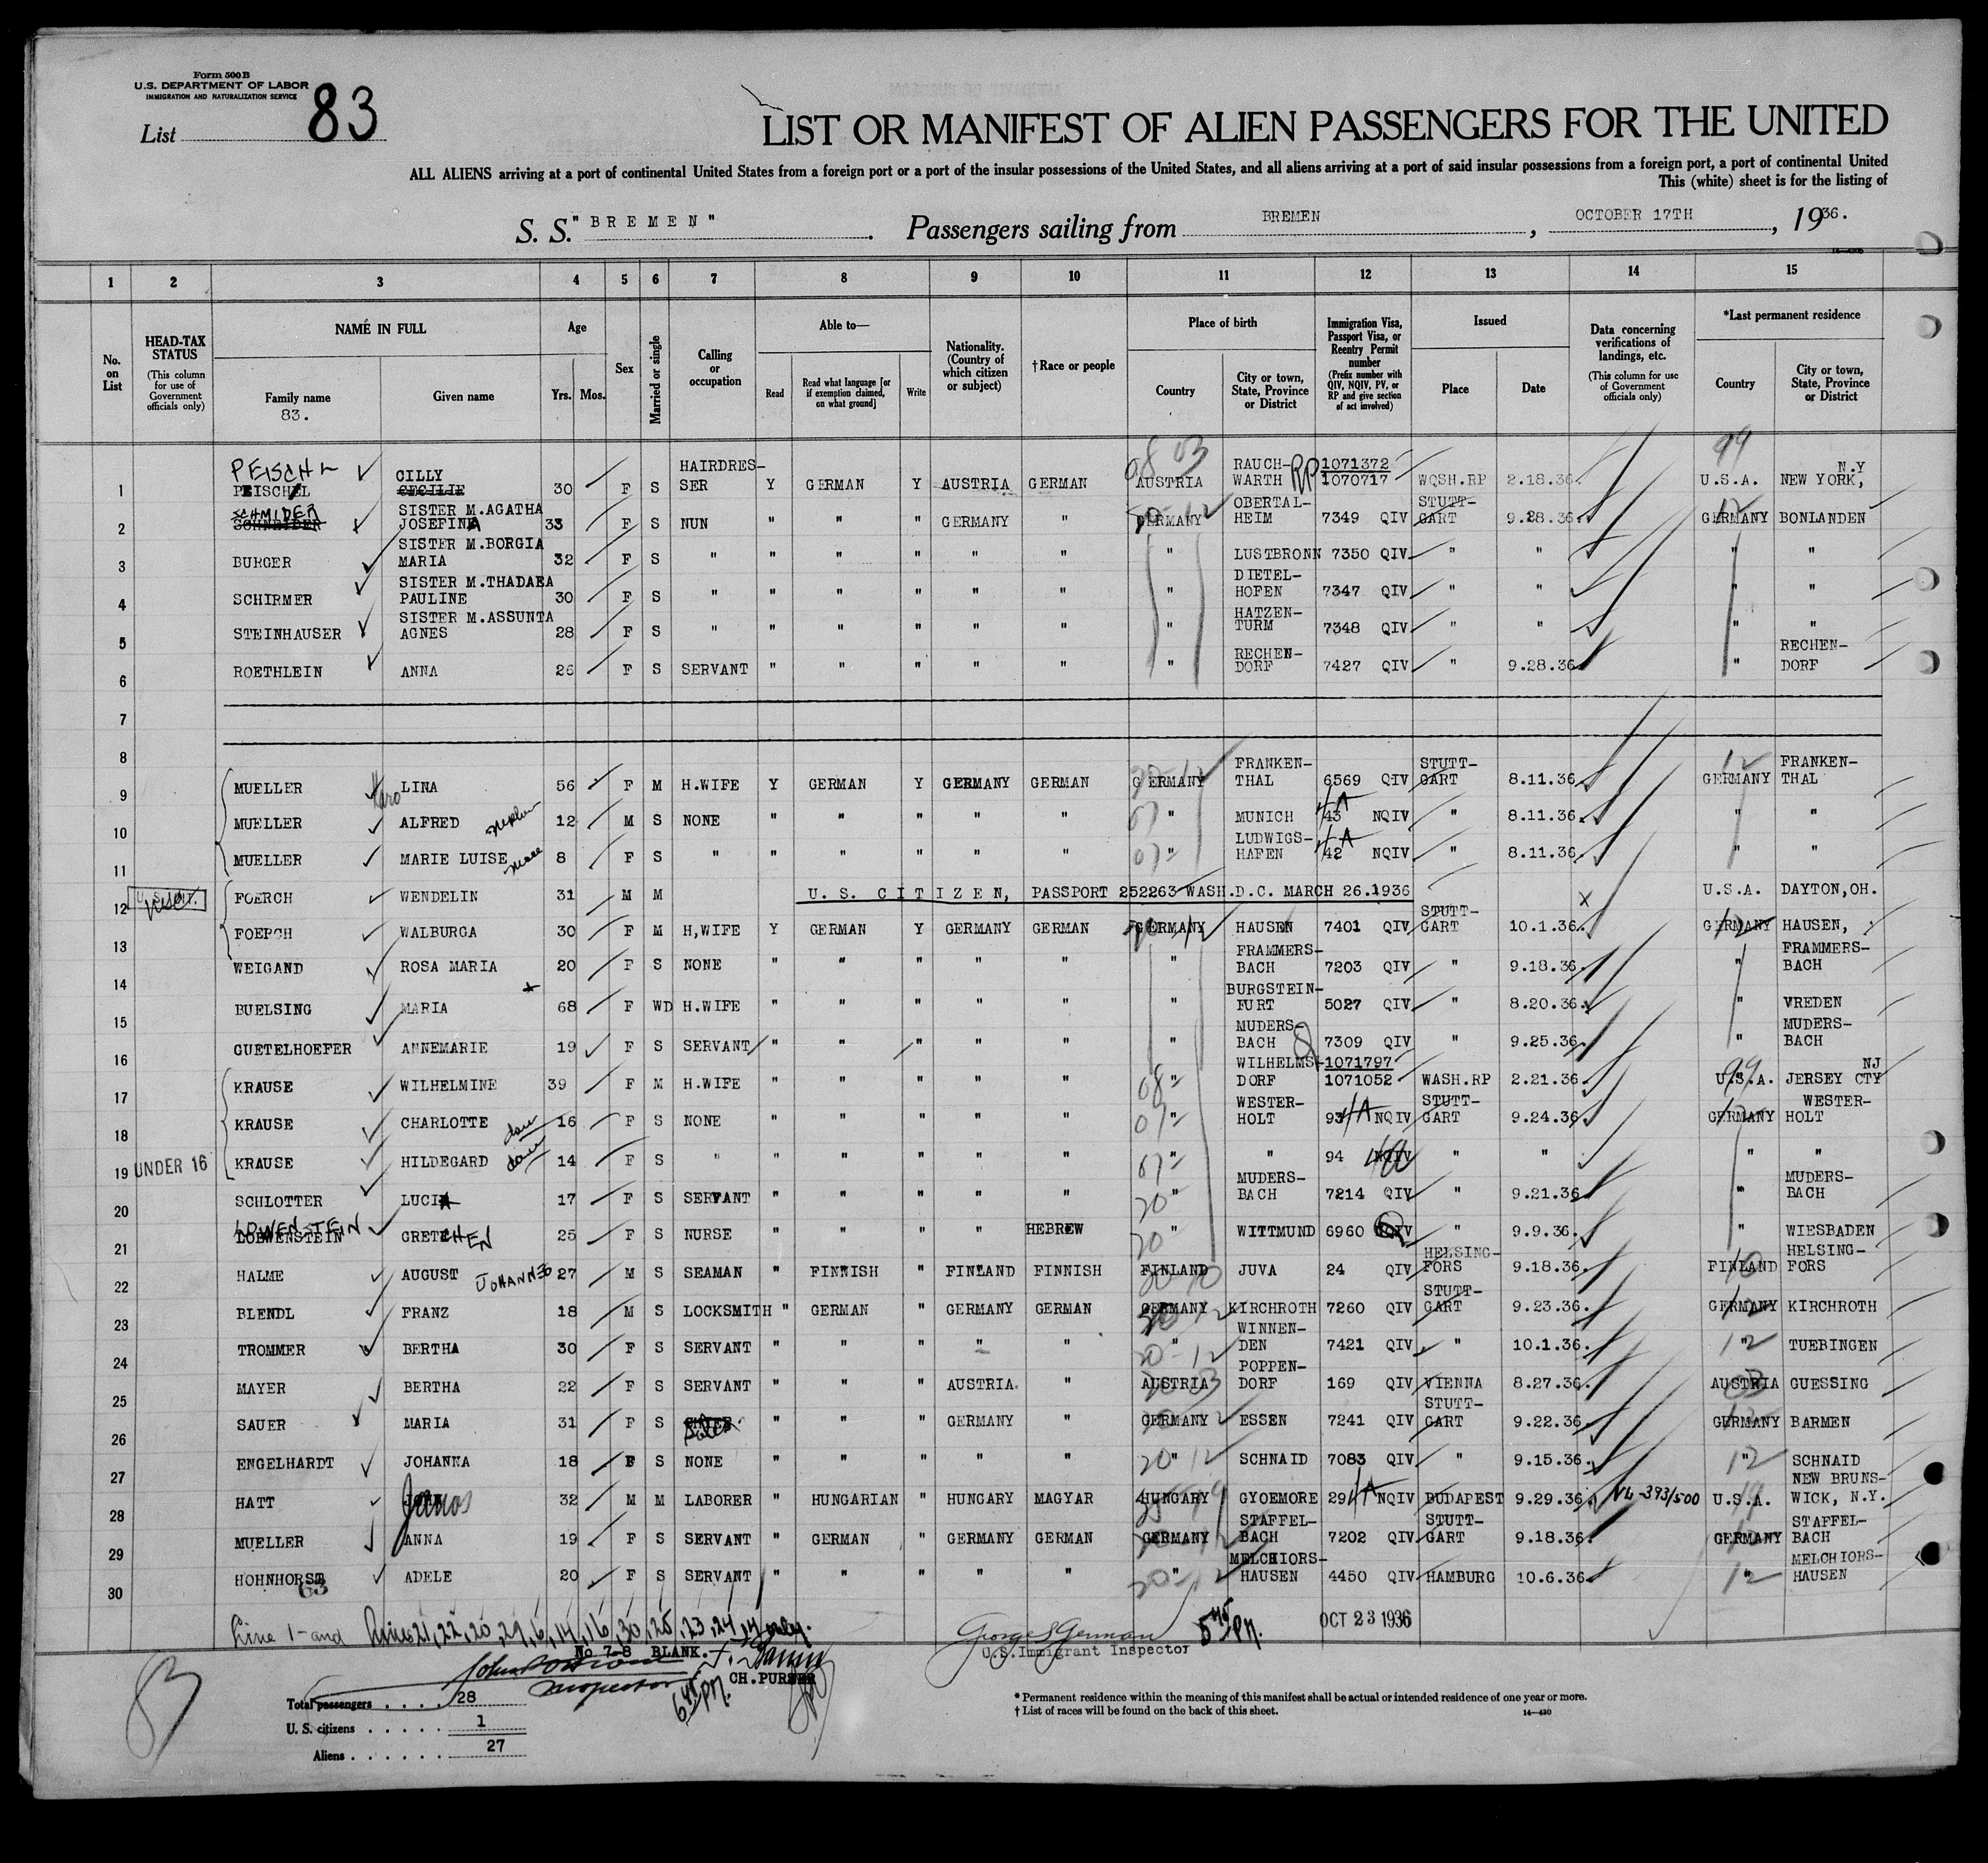 Form 500 B
U.S. DEPARTMENT OF LABOR
IMMIGRATION AND NATURALIZATION SERVICE
List 83
LIST OR MANIFEST OF ALIEN PASSENGERS FOR THE UNITED
ALL ALIENS arriving at a port of continental United States from a foreign port or a port of the insular possessions of the United States, and all aliens arriving at a port of said insular possessions from a foreign port, a port of continental United
This (white) sheet is for the listing of
S. S. "BREMEN". Passengers sailing from BREMEN, OCTOBER 17TH, 1936.
1 2 3 4 5 6 7 8 9 10 11 12 13 14 15
No. on List
HEAD-TAX STATUS (This column for use of Government officials only)
NAME IN FULL Family name 83. Given name
Age Yrs. Mos.
Sex
Married or single
Calling or occupation
Able to— Read Read what language [or if exemption claimed, on what ground] Write
Nationality. (Country of which citizen or subject)
†Race or people
Place of birth Country City or town, State, Province or District
Immigration Visa, Passport Visa, or Reentry Permit number (Prefix number with QIV, NQIV, PV, or RP and give section of act involved)
Issued Place Date
Data concerning verifications of landings, etc. (This column for use of Government officials only)
*Last permanent residence Country City or town, State, Province or District
1 PEISCHL PEISCHEL CILLY CECILIE 30 F S HAIRDRES-SER Y GERMAN Y AUSTRIA GERMAN 08 03 AUSTRIA RAUCH-WARTH RP 1071372 1070717 WQSH.RP 2.18.36 99 U.S.A. NEW YORK, N.Y
2 SCHMIDER SCHNEIDER SISTER M.AGATHA JOSEFINA 33 F S NUN " " " GERMANY " GERMANY OBERTAL-HEIM 7349 QIV STUTT-GART 9.28.36 12 GERMANY BONLANDEN
3 BURGER SISTER M.BORGIA MARIA 32 F S " " " " " " " LUSTBRONN 7350 QIV " " " "
4 SCHIRMER SISTER M.THADAEA PAULINE 30 F S " " " " " " " DIETEL-HOFEN 7347 QIV " " " "
5 STEINHAUSER SISTER M.ASSUNTA AGNES 28 F S " " " " " " " HATZEN-TURM 7348 QIV " " " "
6 ROETHLEIN ANNA 26 F S SERVANT " " " " " " RECHEN-DORF 7427 QIV " 9.28.36 " RECHEN-DORF
7
8
9 MUELLER LINA 56 F M H.WIFE Y GERMAN Y GERMANY GERMAN GERMANY FRANKEN-THAL 6569 QIV STUTT-GART 8.11.36 12 GERMANY FRANKEN-THAL
10 MUELLER ALFRED nephew 12 M S NONE " " " " " 07 " MUNICH 4A 43 NQIV " 8.11.36 " "
11 MUELLER MARIE LUISE niece 8 F S " " " " " " 07 " LUDWIGS-HAFEN 4A 42 NQIV " 8.11.36 " "
12 U.S. CIT. FOERCH WENDELIN 31 M M U.S. CITIZEN, PASSPORT 252263 WASH.D.C. MARCH 26.1936 X U.S.A. DAYTON,OH.
13 FOERCH WALBURGA 30 F M H,WIFE Y GERMAN Y GERMANY GERMAN GERMANY HAUSEN 7401 QIV STUTT-GART 10.1.36 12 GERMANY HAUSEN,
14 WEIGAND ROSA MARIA 20 F S NONE " " " " " " FRAMMERS-BACH 7203 QIV " 9.18.36 " FRAMMERS-BACH
15 BUELSING MARIA X 68 F WD H.WIFE " " " " " " BURGSTEIN-FURT 5027 QIV " 8.20.36 " VREDEN
16 GUETELHOEFER ANNEMARIE 19 F S SERVANT " " " " " " MUDERS-BACH 7309 QIV " 9.25.36 " MUDERS-BACH
17 KRAUSE WILHELMINE 39 F M H.WIFE " " " " " 08 " WILHELMS-DORF 1071797 1071052 WASH.RP 2.21.36 99 U.S.A. JERSEY CTY NJ
18 KRAUSE CHARLOTTE dau 16 F S NONE " " " " " 07 " WESTER-HOLT 93 4A NQIV STUTT-GART 9.24.36 GERMANY WESTER-HOLT
19 UNDER 16 KRAUSE HILDEGARD dau 14 F S " " " " " " 07 " " 94 4a NQIV " " " "
20 SCHLOTTER LUCIA 17 F S SERVANT " " " " " 20 " MUDERS-BACH 7214 QIV " 9.21.36 " MUDERS-BACH
21 LOWENSTEIN LOEWENSTEIN GRETCHEN 25 F S NURSE " " " " HEBREW 20 " WITTMUND 6960 QIV " 9.9.36 " WIESBADEN
22 HALME AUGUST JOHANNES 27 M S SEAMAN " FINNISH " FINLAND FINNISH FINLAND JUVA 24 QIV HELSING-FORS 9.18.36 10 FINLAND HELSING-FORS
23 BLENDL FRANZ 18 M S LOCKSMITH " GERMAN " GERMANY GERMAN GERMANY KIRCHROTH 7260 QIV STUTT-GART 9.23.36 12 GERMANY KIRCHROTH
24 TROMMER BERTHA 30 F S SERVANT " " " " " 20-12 " WINNEN-DEN 7421 QIV " 10.1.36 12 " TUEBINGEN
25 MAYER BERTHA 22 F S SERVANT " " " AUSTRIA. " AUSTRIA POPPEN-DORF 169 QIV VIENNA 8.27.36 03 AUSTRIA GUESSING
26 SAUER MARIA 31 F S " " " GERMANY " GERMANY ESSEN 7241 QIV STUTT-GART 9.22.36 12 GERMANY BARMEN
27 ENGELHARDT JOHANNA 18 F S NONE " " " " " 20 12 " SCHNAID 7083 QIV " 9.15.36 12 " SCHNAID
28 HATT Janos 32 M M LABORER " HUNGARIAN " HUNGARY MAGYAR HUNGARY GYOEMORE 29 4A NQIV BUDAPEST 9.29.36 VL-393/500 U.S.A. NEW BRUNS-WICK, N.Y.
29 MUELLER ANNA 19 F S SERVANT " GERMAN " GERMANY GERMAN GERMANY STAFFEL-BACH 7202 QIV STUTT-GART 9.18.36 GERMANY STAFFEL-BACH
30 HOHNHORST 63 ADELE 20 F S SERVANT " " " " " 20-12 " MELCHIORS-HAUSEN 4450 QIV HAMBURG 10.6.36 12 " MELCHIORS-HAUSEN
Line 1-and Lines 21, 22, 20, 29, 6, 14, 16, 30, 25, 23, 24, only.
George S German 5 45 pm. OCT 23 1936
No 7-8 BLANK. U.S.Immigrant Inspector
Inspector 6 45 pm. CH.PURSER
83
Total passengers . . . . 28
U. S. citizens . . . . . 1
Aliens . . . . . . 27
* Permanent residence within the meaning of this manifest shall be actual or intended residence of one year or more.
† List of races will be found on the back of this sheet. 14—430